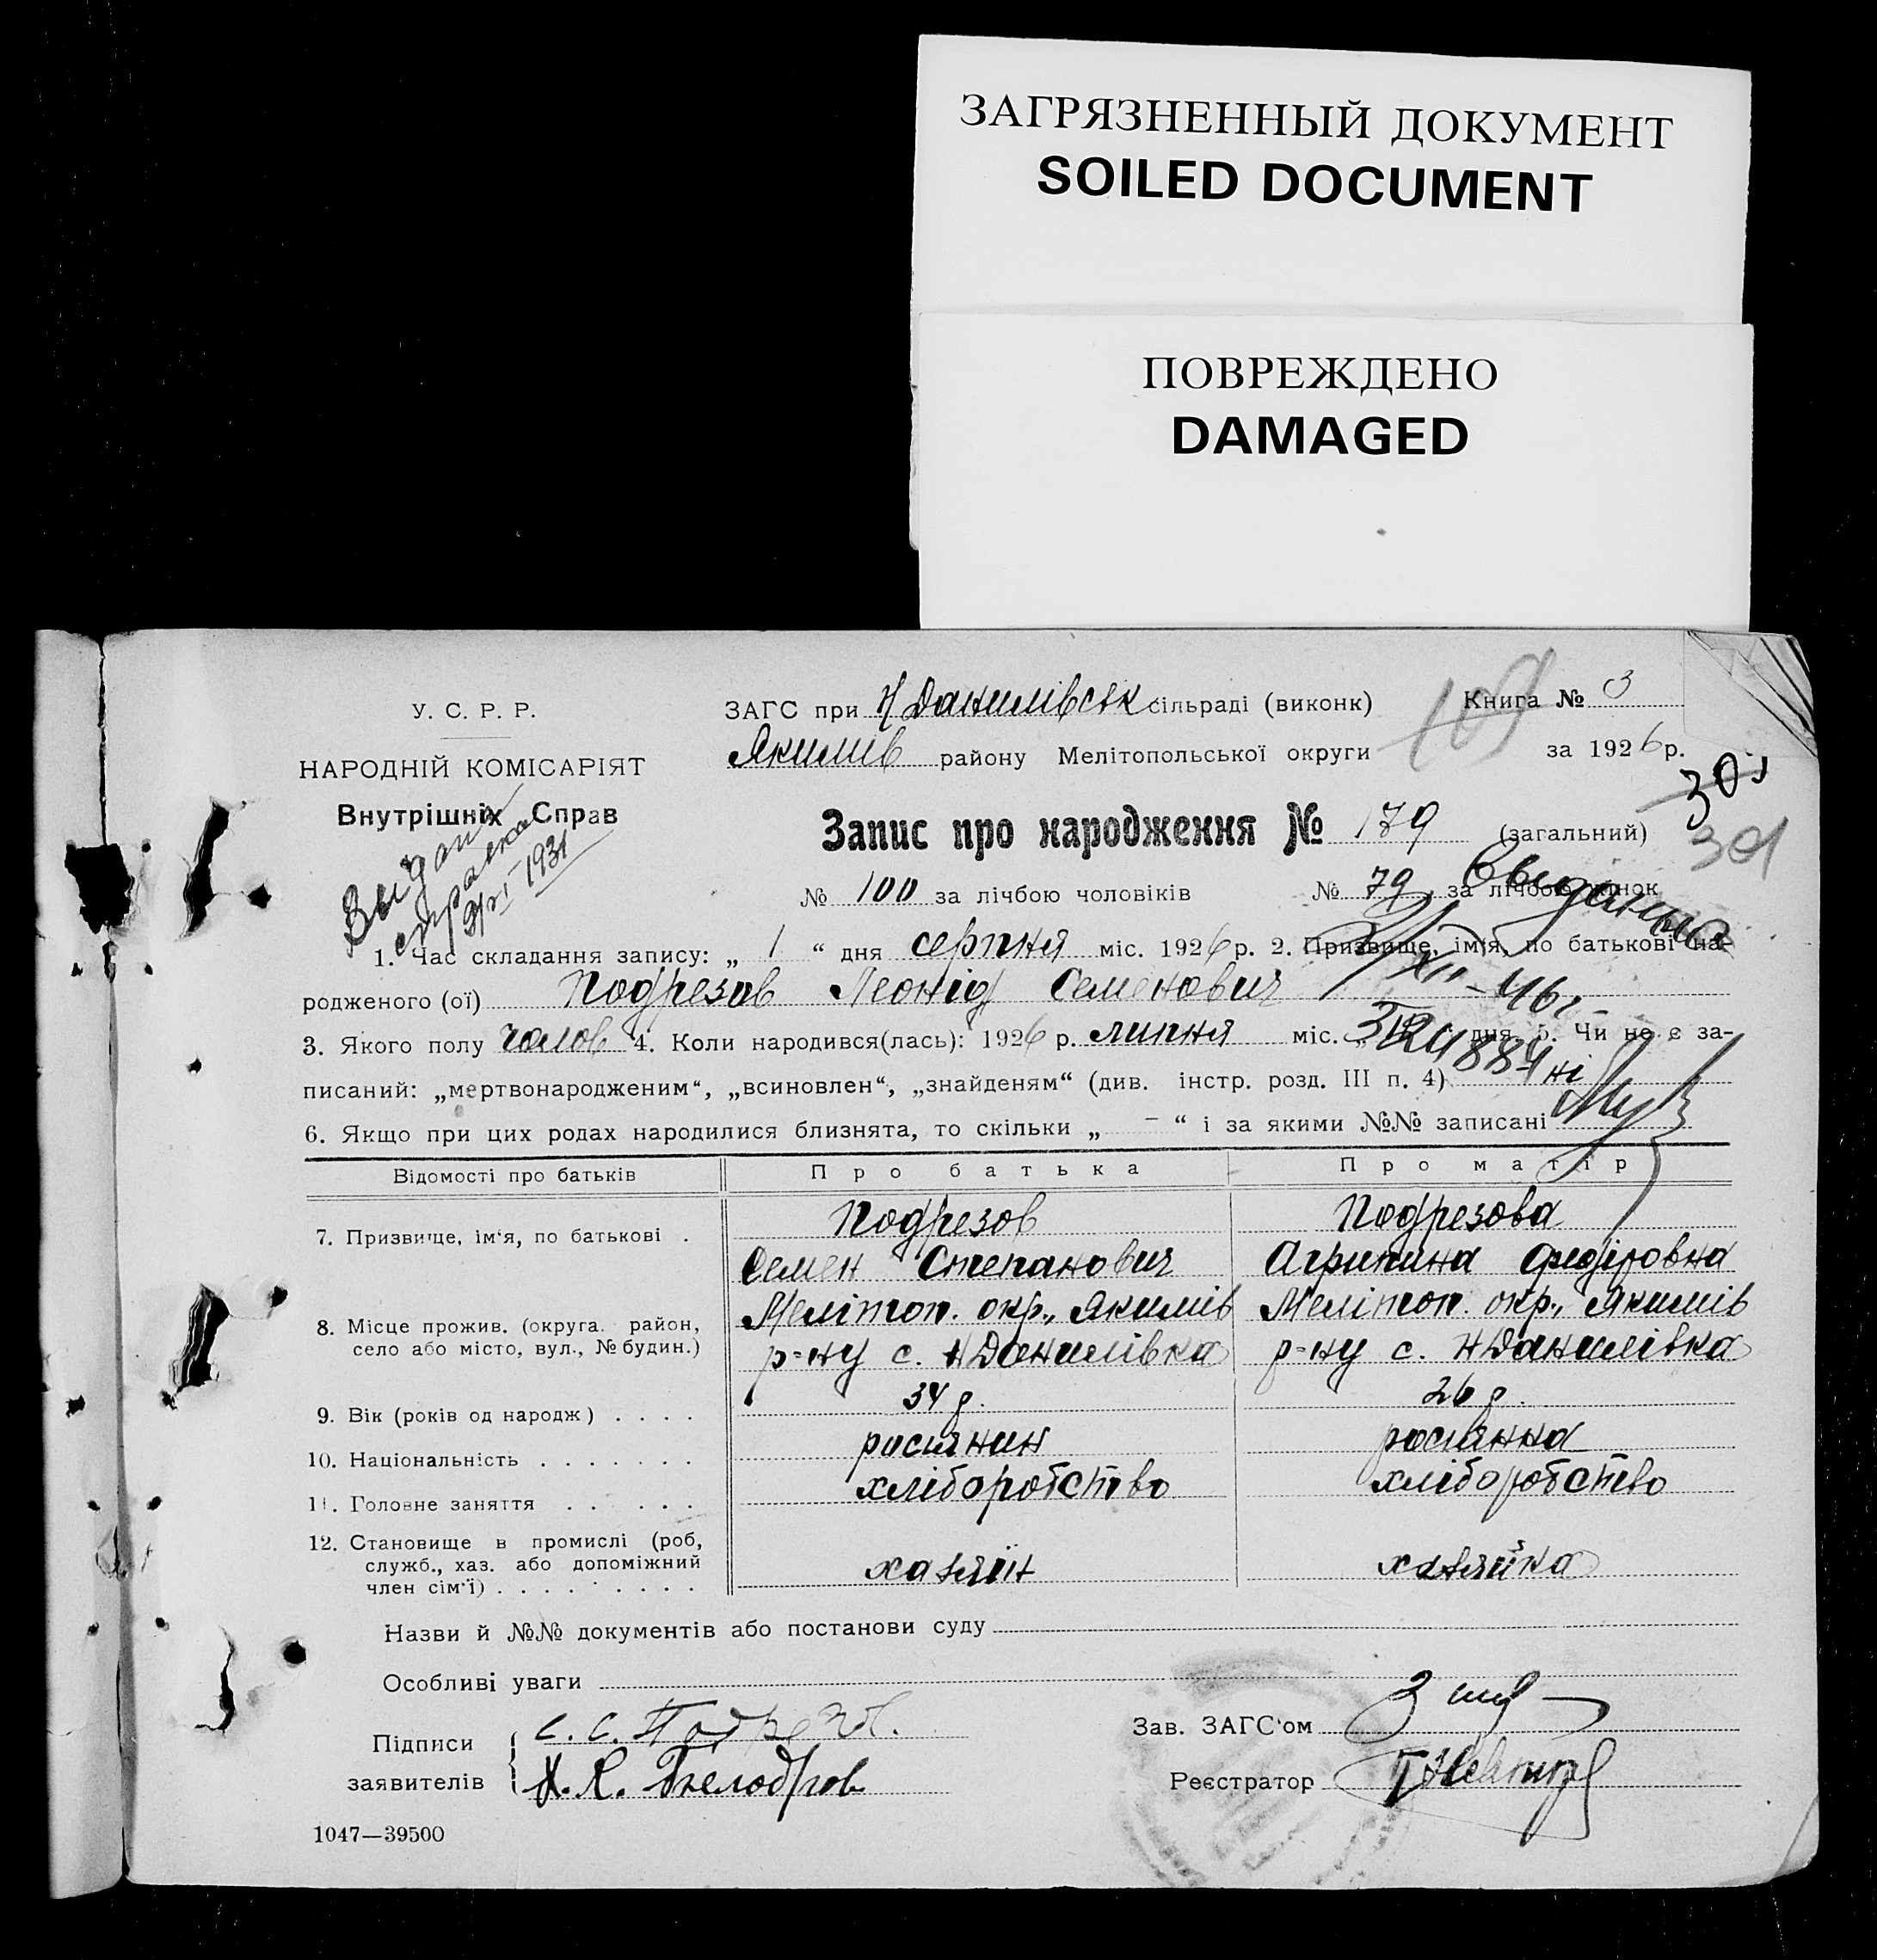 ЗАГРЯЗНЕННЫЙ ДОКУМЕНТ
SOILED DOCUMENT
ПОВРЕЖДЕНО
DAMAGED
У. С. Р. Р.
НАРОДНІЙ КОМІСАРІЯТ
Внутрішніх Справ
ЗАГС при Н Данилівськ сільраді (виконк) Книга № 3
Якимів району Мелітопольської округи за 1926 р.
109
301
301
Запис про народження № 179 (загальний)
№ 100 за лічбою чоловіків № 79 за лічбою жінок
Видана
справка
1931
1. Час складання запису: „ 1 “ дня серпня міс. 1926 р. 2. Призвище, ім'я, по батькові на-
родженого (ої) Подрезов Леонід Семенович
3. Якого полу чолов 4. Коли народився(лась): 1926 р. липня міс. дня. 5. Чи не є за-
писаний: „мертвонародженим“, „всиновлен“, „знайденям“ (див. інстр. розд. III п. 4) ні
6. Якщо при цих родах народилися близнята, то скільки „ – “ і за якими №№ записані
Відомості про батьків Про батька Про матір
7. Призвище, ім'я, по батькові . Подрезов Подрезова
Семен Степанович Агрипина Федіровна
8. Місце прожив. (округа, район, село або місто, вул., № будин.) Мелітоп. окр., Якимів Мелітоп. окр., Якимів
р-ну с. НДанилівка р-ну с. НДанилівка
9. Вік (років од народж) . . . . 34 р. 26 р.
10. Національність . . . . . . . росіянин росіянка
11. Головне заняття . . . . . . хліборобство хліборобство
12. Становище в промислі (роб,
служб., хаз. або допоміжний
член сім'ї) . . . . . . . . . хазяїн хазяйка
Назви й №№ документів або постанови суду
Особливі уваги
Підписи
заявителів
С. С. Подрезов.
Зав. ЗАГС'ом
Реєстратор
1047—39500